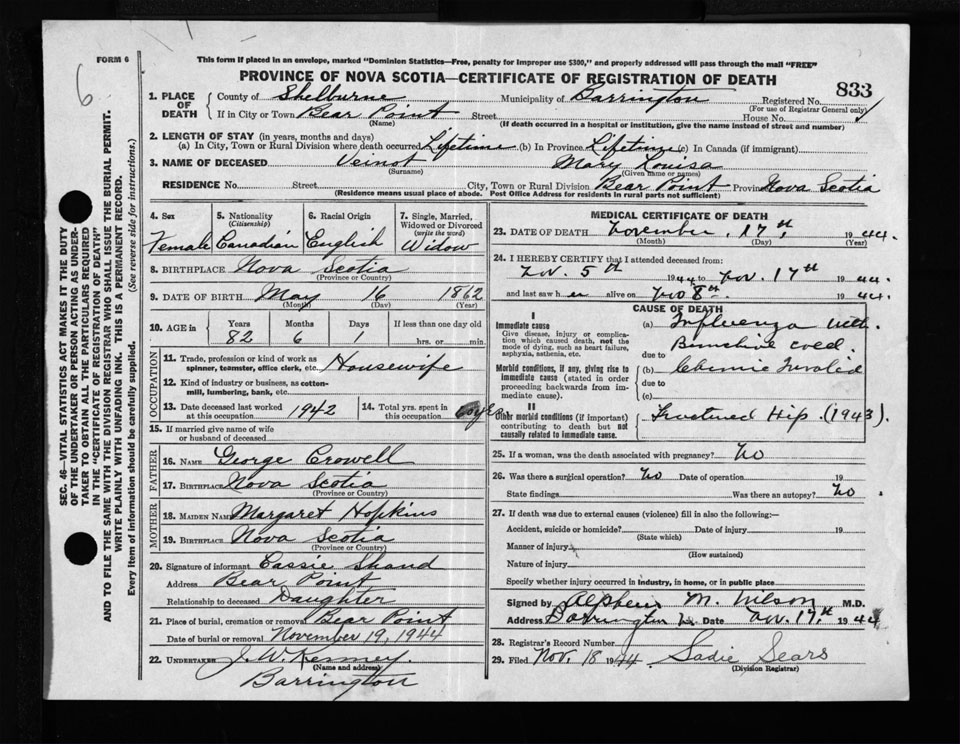 FORM 6
6
This form if placed in an envelope, marked "Dominion Statistics—Free, penalty for improper use $300," and properly addressed will pass through the mail "FREE"
PROVINCE OF NOVA SCOTIA—CERTIFICATE OF REGISTRATION OF DEATH
833
1. PLACE OF DEATH
County of Shelburne Municipality of Barrington Registered No.
(For use of Registrar General only)
If in City or Town Bear Point Street House No.
(Name) (If death occurred in a hospital or institution, give the name instead of street and number)
2. LENGTH OF STAY (in years, months and days)
(a) In City, Town or Rural Division where death occurred Lifetime (b) In Province Lifetime (c) in Canada (if immigrant)
3. NAME OF DECEASED Veinot Mary Louisa
(Surname) (Given name or names)
RESIDENCE No. Street City, Town or Rural Division Bear Point Province Nova Scotia
(Residence means usual place of abode. Post Office Address for residents in rural parts not sufficient)
4. Sex
Female
5. Nationality
(Citizenship)
Canadian
6. Racial Origin
English
7. Single, Married, Widowed or Divorced
(write the word)
Widow
8. BIRTHPLACE Nova Scotia
(Province or Country)
9. DATE OF BIRTH May 16 1862
(Month) (Day) (Year)
10. AGE in Years Months Days If less than one day old
82 6 1 hrs. or min.
OCCUPATION
11. Trade, profession or kind of work as
spinner, teamster, office clerk, etc. Housewife
12. Kind of industry or business, as cotton-
mill, lumbering, bank, etc.
13. Date deceased last worked
at this occupation 1942
14. Total yrs. spent in
this occupation
15. If married give name of wife
or husband of deceased
FATHER
16. NAME George Crowell
17. BIRTHPLACE Nova Scotia
(Province or Country)
MOTHER
18. MAIDEN NAME Margaret Hopkins
19. BIRTHPLACE Nova Scotia
(Province or Country)
20. Signature of informant Cassie Shand
Address Bear Point
Relationship to deceased Daughter
21. Place of burial, cremation or removal Bear Point
Date of burial or removal November 19, 1944
22. UNDERTAKER J. W. Kenney.
(Name and address)
Barrington
MEDICAL CERTIFICATE OF DEATH
23. DATE OF DEATH November 17th 1944.
(Month) (Day) (Year)
24. I HEREBY CERTIFY that I attended deceased from:
Nov. 5th 1944 to Nov. 17th 1944.
and last saw her alive on Nov 8th 1944.
CAUSE OF DEATH
I
Immediate cause
Give disease, injury or complica-
tion which caused death, not the
mode of dying, such as heart failure,
asphyxia, asthenia, etc.
(a) Influenza with
due to
Morbid conditions, if any, giving rise to
immediate cause (stated in order
proceeding backwards from im-
mediate cause).
(b) Chronic Invalid
due to
(c)
II
Other morbid conditions (if important)
contributing to death but not
causally related to immediate cause.
Fractured Hip. (1943).
25. If a woman, was the death associated with pregnancy? No
26. Was there a surgical operation? No Date of operation 19
State findings Was there an autopsy? No
27. If death was due to external causes (violence) fill in also the following:—
Accident, suicide or homicide? Date of injury 19
(State which)
Manner of injury
(How sustained)
Nature of injury
Specify whether injury occurred in industry, in home, or in public place
Signed by Alpheus M. Wilson M.D.
Address Barrington Date Nov. 17th 1944
28. Registrar's Record Number
29. Filed Nov. 18 1944 Sadie Sears
(Division Registrar)
SEC. 46—VITAL STATISTICS ACT MAKES IT THE DUTY
OF THE UNDERTAKER OR PERSON ACTING AS UNDER-
TAKER TO OBTAIN ALL THE PARTICULARS REQUIRED
IN THE "CERTIFICATE OF REGISTRATION OF DEATH"
AND TO FILE THE SAME WITH THE DIVISION REGISTRAR WHO SHALL ISSUE THE BURIAL PERMIT.
WRITE PLAINLY WITH UNFADING INK. THIS IS A PERMANENT RECORD.
Every item of information should be carefully supplied. (See reverse side for instructions.)